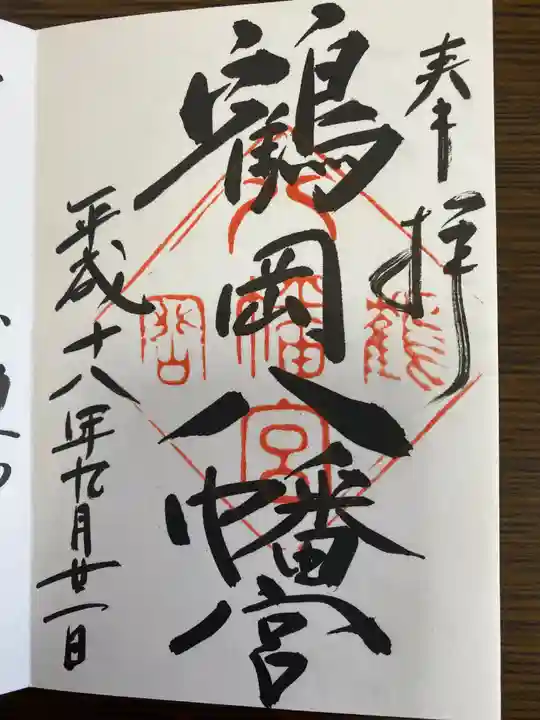 奉拝
鶴岡八幡宮
鶴
岡
八
幡
宮
平成十八年九月廿一日